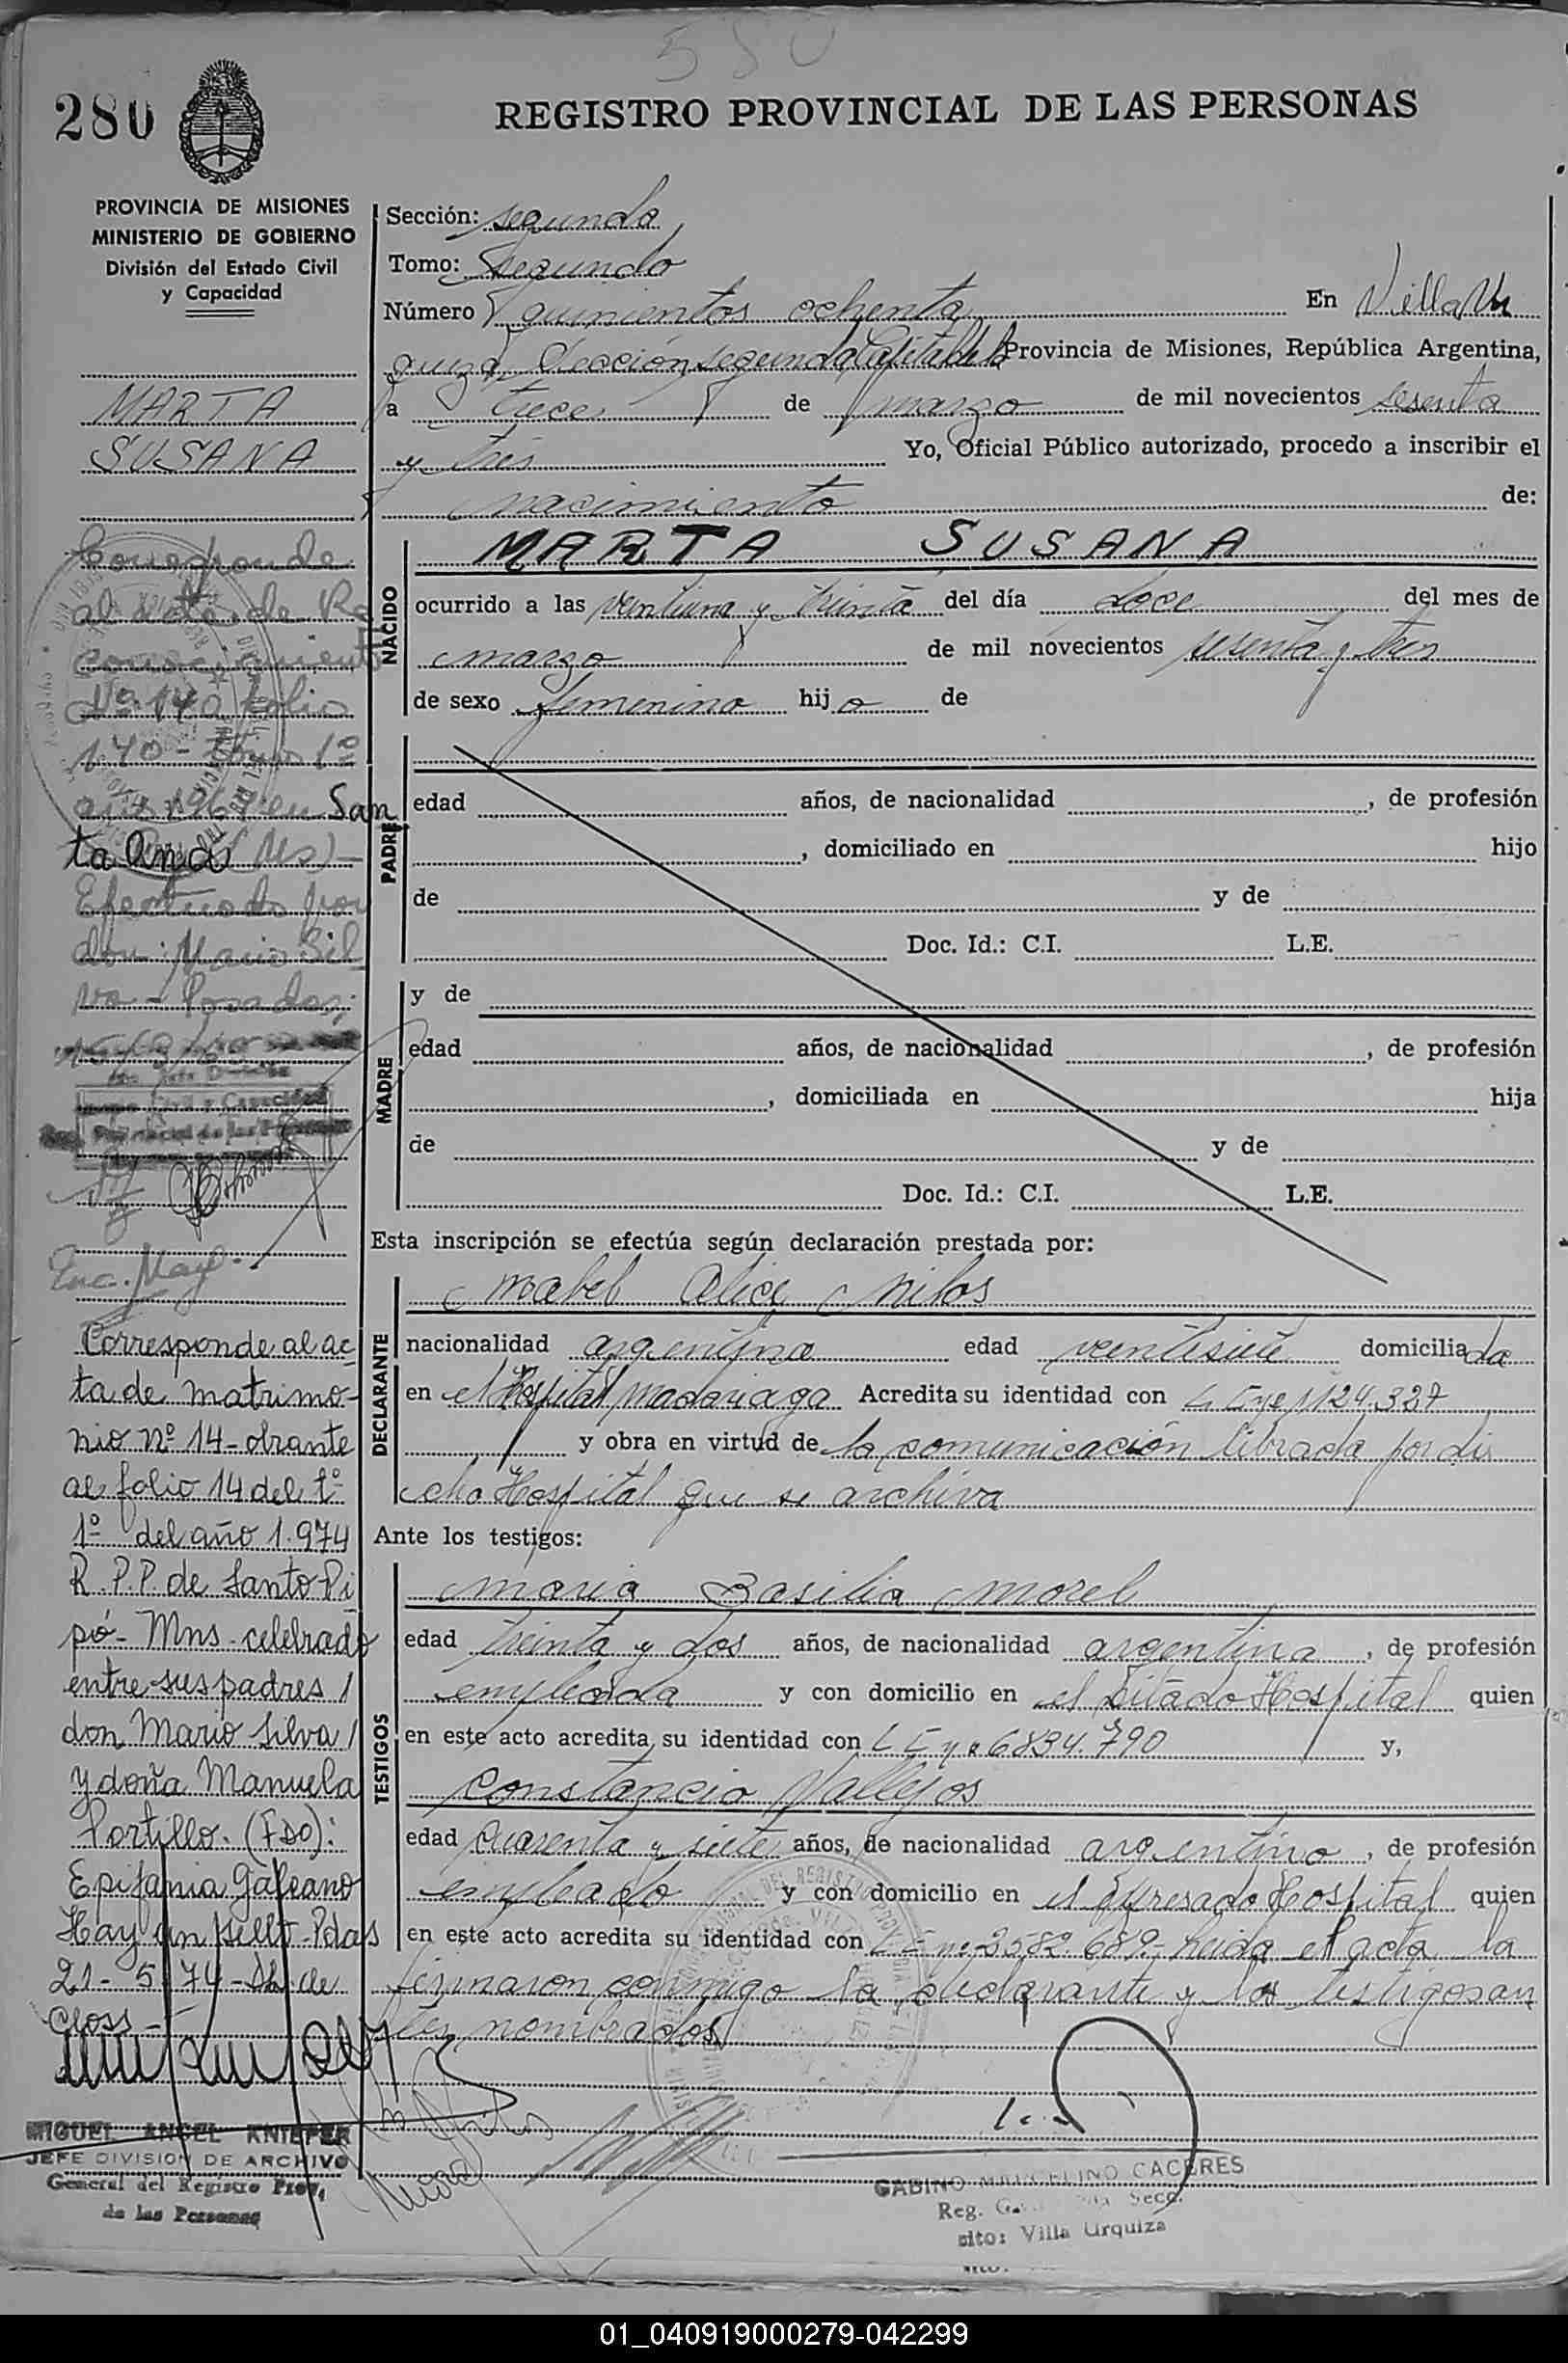 580
280
REGISTRO PROVINCIAL DE LAS PERSONAS
PROVINCIA DE MISIONES
MINISTERIO DE GOBIERNO
División del Estado Civil
y Capacidad
MARTA
SUSANA
Corresponde
al acta de Re
conocimiento
Nº 140 folio
140 - tomo 1º
año en San
ta Ana (Ms) -
Efectuado por
don: Mario Sil
va - Posadas;
Enc. May.
Corresponde al ac
ta de matrimo-
nio nº 14 - obrante
al folio 14 del tº
1º del año 1.974
R.P.P. de Santo Pi
pó - Mns - celebrado
entre sus padres /
don Mario Silva /
y doña Manuela
Portillo. (FDO):
Epifania Galeano
Hay un sello - Pdas
21 - 5 - 74 - de
Closs -
MIGUEL ANGEL KNIEPER
JEFE DIVISION DE ARCHIVO
General del Registro Prov.
de las Personas
Sección: segunda
Tomo: Segundo
Número quinientos ochenta En Villa Ur
quiza, Sección segunda Capital de la Provincia de Misiones, República Argentina,
a trece de marzo de mil novecientos sesenta
y tres Yo, Oficial Público autorizado, procedo a inscribir el
nacimiento de:
NACIDO
MARTA SUSANA
ocurrido a las veintiuna y treinta del día doce del mes de
marzo de mil novecientos sesenta y tres
de sexo femenino hij a de
PADRE
edad años, de nacionalidad , de profesión
, domiciliado en hijo
de y de
Doc. Id.: C.I. L.E.
MADRE
y de
edad años, de nacionalidad , de profesión
, domiciliada en hija
de y de
Doc. Id.: C.I. L.E.
Esta inscripción se efectúa según declaración prestada por:
DECLARANTE
Mabel Alice Milos
nacionalidad argentina edad veintisiete domicilia da
en el Hospital Madariaga Acredita su identidad con 1124.327
y obra en virtud de la comunicación librada por di
cho Hospital que se archiva
Ante los testigos:
TESTIGOS
Maria Basilia Morel
edad treinta y dos años, de nacionalidad argentina, de profesión
empleada y con domicilio en el citado Hospital quien
en este acto acredita su identidad con L E nº 6834.790 y,
Constancio Vallejos
edad cuarenta y siete años, de nacionalidad argentino, de profesión
empleado y con domicilio en el expresado Hospital quien
en este acto acredita su identidad con L E nº 3582.689.- Leida el acta la
firmaron conmigo la declarante y los testigos an
tes nombrados
GABINO MARCELINO CACERES
Reg. Secc.
sito: Villa Urquiza
01_040919000279-042299